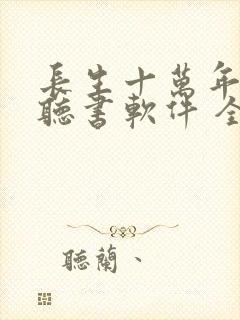 長生十萬年
聽書軟件 全
聽蘭、